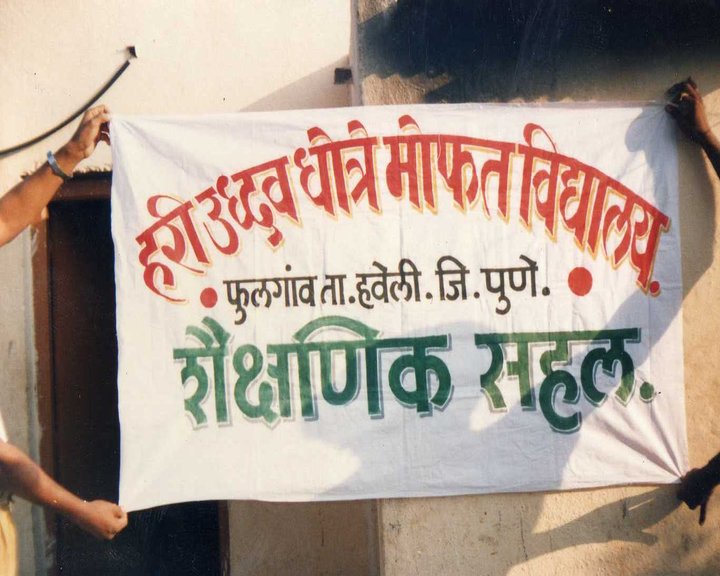 हरी उध्दव धोत्रे मोफत विद्यालय.
फुलगांव ता. हवेली. जि. पुणे.
शैक्षणिक सहल.